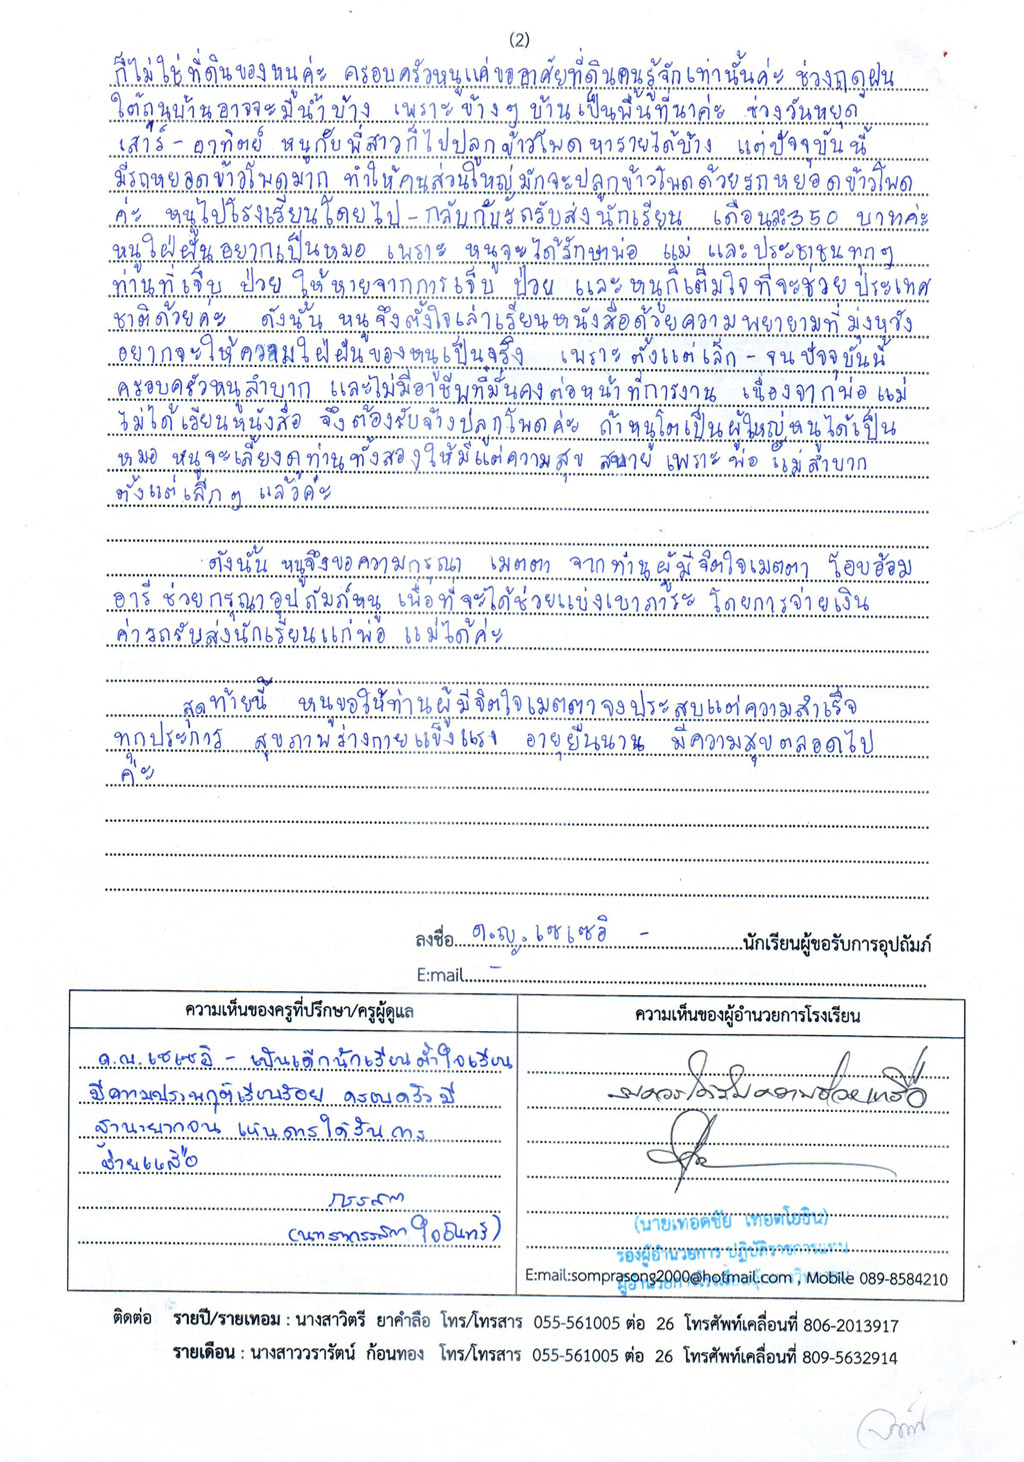 (2)
ก็ไม่ใช่ที่ดินของหนูค่ะ ครอบครัวหนูแค่ขออาศัยที่ดินคนรู้จักเท่านั้นค่ะ ช่วงฤดูฝน
ใต้ถุนบ้านอาจจะมีน้ำบ้าง เพราะข้างๆ บ้านเป็นพื้นที่นาค่ะ ช่วงวันหยุด
เสาร์ - อาทิตย์ หนูกับพี่สาวก็ไปปลูกข้าวโพดหารายได้บ้าง แต่ปัจจุบันนี้
มีรถหยอดข้าวโพดมาก ทำให้คนส่วนใหญ่มักจะปลูกข้าวโพดด้วยรถหยอดข้าวโพด
ค่ะ หนูไปโรงเรียนโดยไป - กลับกับรถรับส่งนักเรียน เดือนละ350 บาทค่ะ
หนูใฝ่ฝันอยากเป็นหมอ เพราะ หนูจะได้รักษาพ่อ แม่ และประชาชนทุกๆ
ท่านที่เจ็บ ป่วย ให้หายจากการเจ็บ ป่วย และหนูก็เต็มใจที่จะช่วยประเทศ
ชาติด้วยค่ะ ดังนั้น หนูจึงตั้งใจเล่าเรียนหนังสือด้วยความพยายามที่มุ่งหวัง
อยากจะให้ความใฝ่ฝันของหนูเป็นจริง เพราะตั้งแต่เล็ก - จนปัจจุบันนี้
ครอบครัวหนูลำบาก และไม่มีอาชีพที่มั่นคงต่อหน้าที่การงาน เนื่องจากพ่อแม่
ไม่ได้เรียนหนังสือ จึงต้องรับจ้างปลูกโพดค่ะ ถ้าหนูโตเป็นผู้ใหญ่หนูได้เป็น
หมอ หนูจะเลี้ยงดูท่านทั้งสองให้มีแต่ความสุข สบาย เพราะพ่อ แม่ลำบาก
ตั้งแต่เล็กๆ แล้วค่ะ
ดังนั้น หนูจึงขอความกรุณา เมตตา จากท่านผู้มีจิตใจเมตตา โอบอ้อม
อารี ช่วยกรุณาอุปถัมภ์หนู เพื่อที่จะได้ช่วยแบ่งเบาภาระ โดยการจ่ายเงิน
ค่ารถรับส่งนักเรียนแก่พ่อ แม่ได้ค่ะ
สุดท้ายนี้ หนูขอให้ท่านผู้มีจิตใจเมตตาจงประสบแต่ความสำเร็จ
ทุกประการ สุขภาพร่างกายแข็งแรง อายุยืนนาน มีความสุขตลอดไป
ค่ะ
ลงชื่อ ด.ญ. เซเซอิ - นักเรียนผู้ขอรับการอุปถัมภ์
E:mail -
ความเห็นของครูที่ปรึกษา/ครูผู้ดูแล
ความเห็นของผู้อำนวยการโรงเรียน
ด.ญ.เซเซอิ - เป็นเด็กนักเรียนตั้งใจเรียน
มีความประพฤติเรียบร้อย ครอบครัวมี
ฐานะยากจน เห็นควรได้รับการ
ช่วยเหลือ
สมควรได้รับความช่วยเหลือ
(นายเทอดชัย เทอดโยธิน)
รองผู้อำนวยการ ปฏิบัติราชการแทน
E:mail:somprasong2000@hotmail.com , Mobile 089-8584210
ติดต่อ รายปี/รายเทอม : นางสาวิตรี ยาคำลือ โทร/โทรสาร 055-561005 ต่อ 26 โทรศัพท์เคลื่อนที่ 806-2013917
รายเดือน : นางสาววรารัตน์ ก้อนทอง โทร/โทรสาร 055-561005 ต่อ 26 โทรศัพท์เคลื่อนที่ 809-5632914